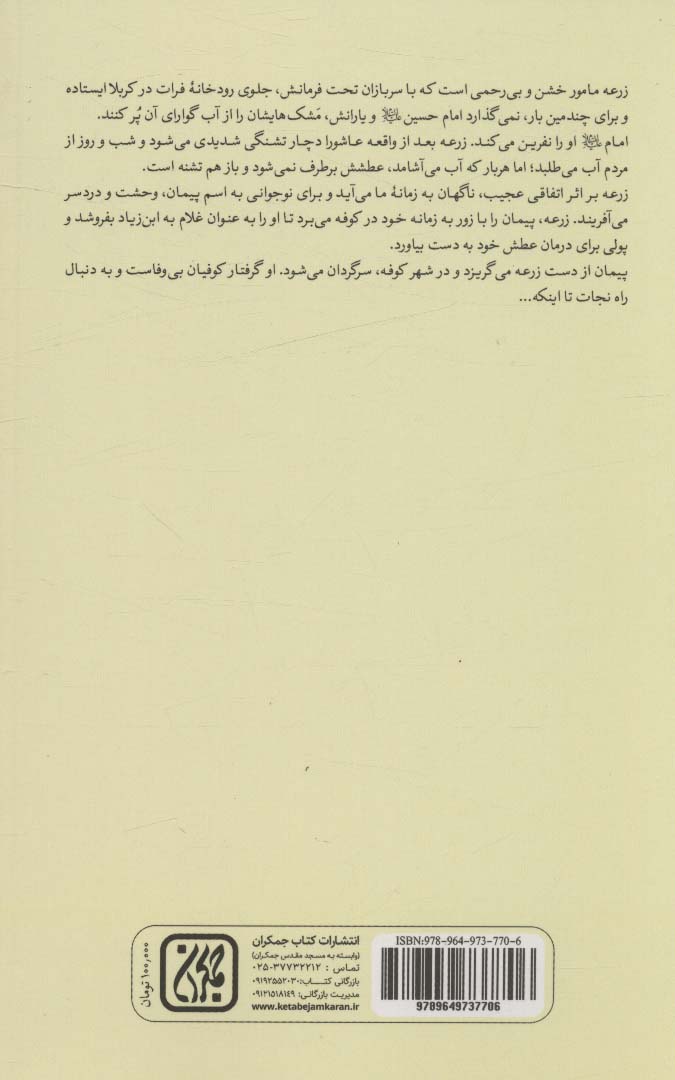 زرعه مامور خشن و بی‌رحمی است که با سربازان تحت فرمانش، جلوی رودخانهٔ فرات در کربلا ایستاده
و برای چندمین بار، نمی‌گذارد امام حسین علیه‌السلام و یارانش، مَشک‌هایشان را از آب گوارای آن پُر کنند.
امام علیه‌السلام او را نفرین می‌کند. زرعه بعد از واقعه عاشورا دچار تشنگی شدیدی می‌شود و شب و روز از
مردم آب می‌طلبد؛ اما هربار که آب می‌آشامد، عطشش برطرف نمی‌شود و باز هم تشنه است.
زرعه بر اثر اتفاقی عجیب، ناگهان به زمانهٔ ما می‌آید و برای نوجوانی به اسم پیمان، وحشت و دردسر
می‌آفریند. زرعه، پیمان را با زور به زمانه خود در کوفه می‌برد تا او را به عنوان غلام به ابن‌زیاد بفروشد و
پولی برای درمان عطش خود به دست بیاورد.
پیمان از دست زرعه می‌گریزد و در شهر کوفه، سرگردان می‌شود. او گرفتار کوفیان بی‌وفاست و به دنبال
راه نجات تا اینکه...
ISBN:978-964-973-770-6
9789649737706
انتشارات کتاب جمکران
(وابسته به مسجد مقدس جمکران)
تماس : ۰۲۵-۳۷۷۳۲۲۱۲
بازرگانی کتاب: ۰۹۱۹۲۵۵۲۰۳۰
مدیریت بازرگانی: ۰۹۱۲۱۵۱۸۱۴۹
www.ketabejamkaran.ir
جمکران
۱۰۰٫۰۰۰ تومان